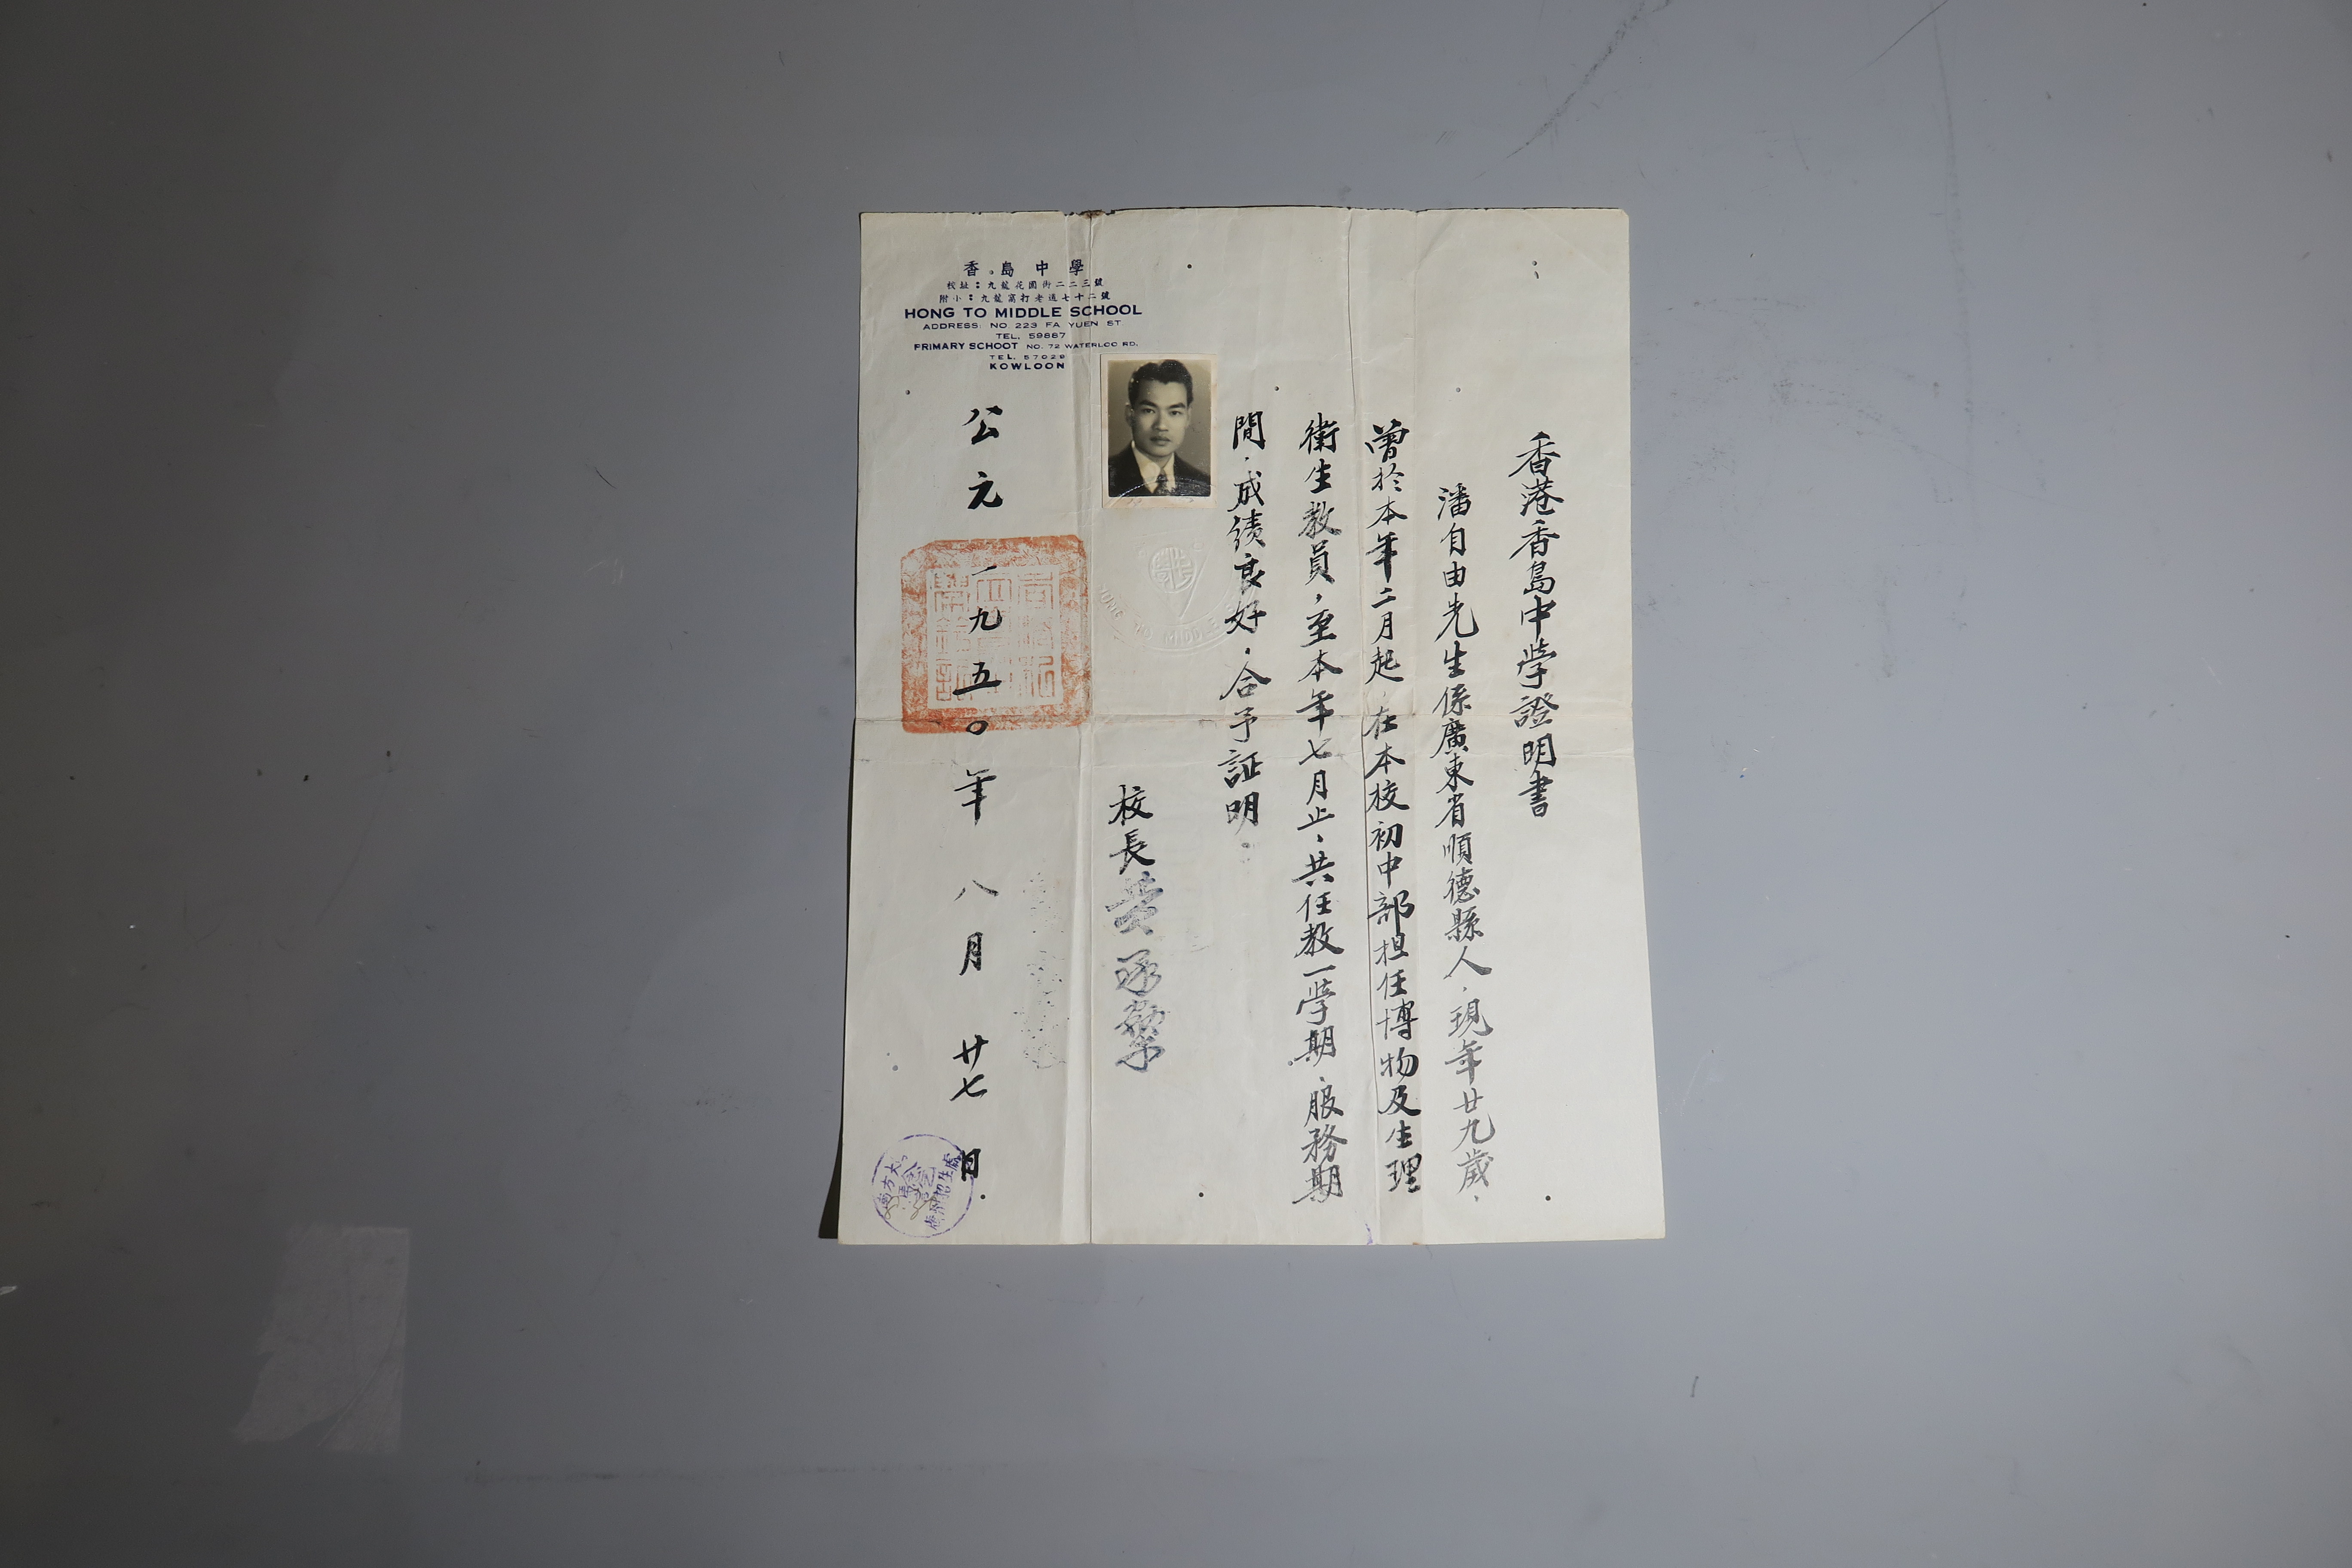 香島中學
校址：九龍花園街二二三號
附小：九龍窩打老道七十二號
HONG TO MIDDLE SCHOOL
ADDRESS: NO. 223 FA YUEN ST
TEL. 59887
PRIMARY SCHOOT NO. 72 WATERLOO RD.
TEL. 57028
KOWLOON
香港香島中學證明書
潘自由先生係廣東省順德縣人，現年廿九歲，
曾於本年二月起，在本校初中部担任博物及生理
衛生教員，至本年七月止，共任教一學期，服務期
間，成績良好，合予証明。
校長
公元一九五〇年八月廿七日